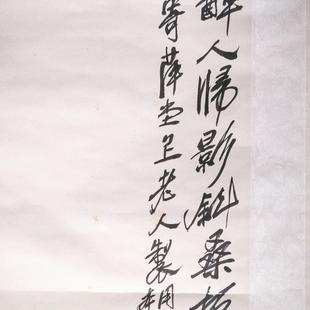 醉人归影斜桑柘
寄萍堂上老人製